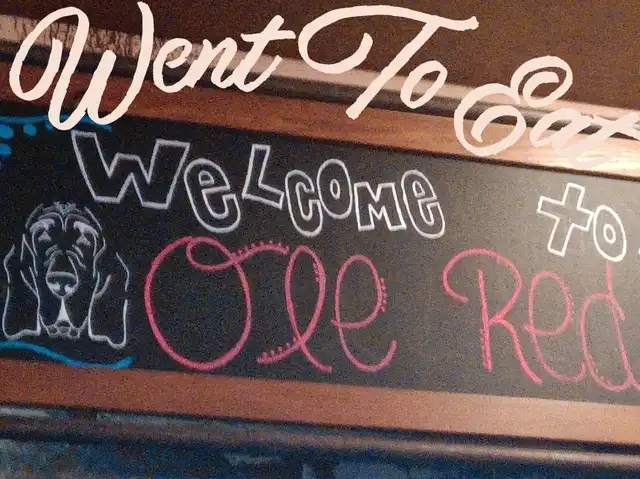 Went To Eat
WELCOME to
Ole Red